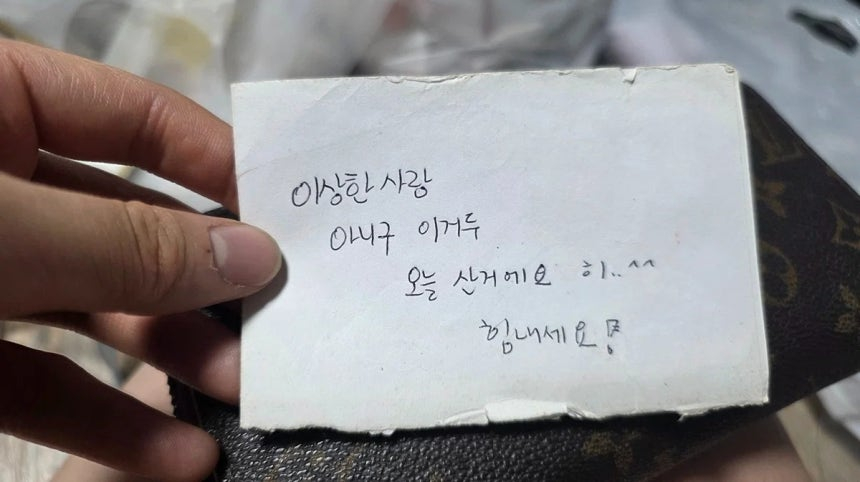 이상한 사랑
아니구 이거두
오늘 산거에요 히..^^
힘내세요!